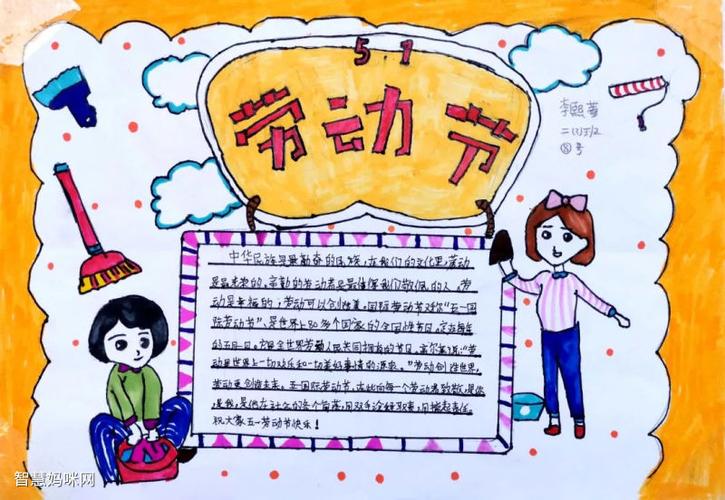 5.1
劳动节
李熙
二(1)班
⑧号
中华民族是最勤奋的民族,在我们的文化里,劳动
是最光荣的,辛勤的劳动者是最值得我们敬佩的人。劳
动是幸福的;劳动可以创造美。国际劳动节又称“五一国
际劳动节”、是世界上80多个国家的全国性节日。定在每年
的五月一日。它是全世界劳动人民共同拥有的节日。高尔基说:“劳
动是世界上一切欢乐和一切美好事情的源泉。”劳动创造世界,
劳动更创造未来。五一国际劳动节,在此向每一个劳动者致敬,是你
是我,是他在社会的每个角落,用双手诠释职责,用 起责任。
祝大家五一劳动节快乐!
智慧妈咪网